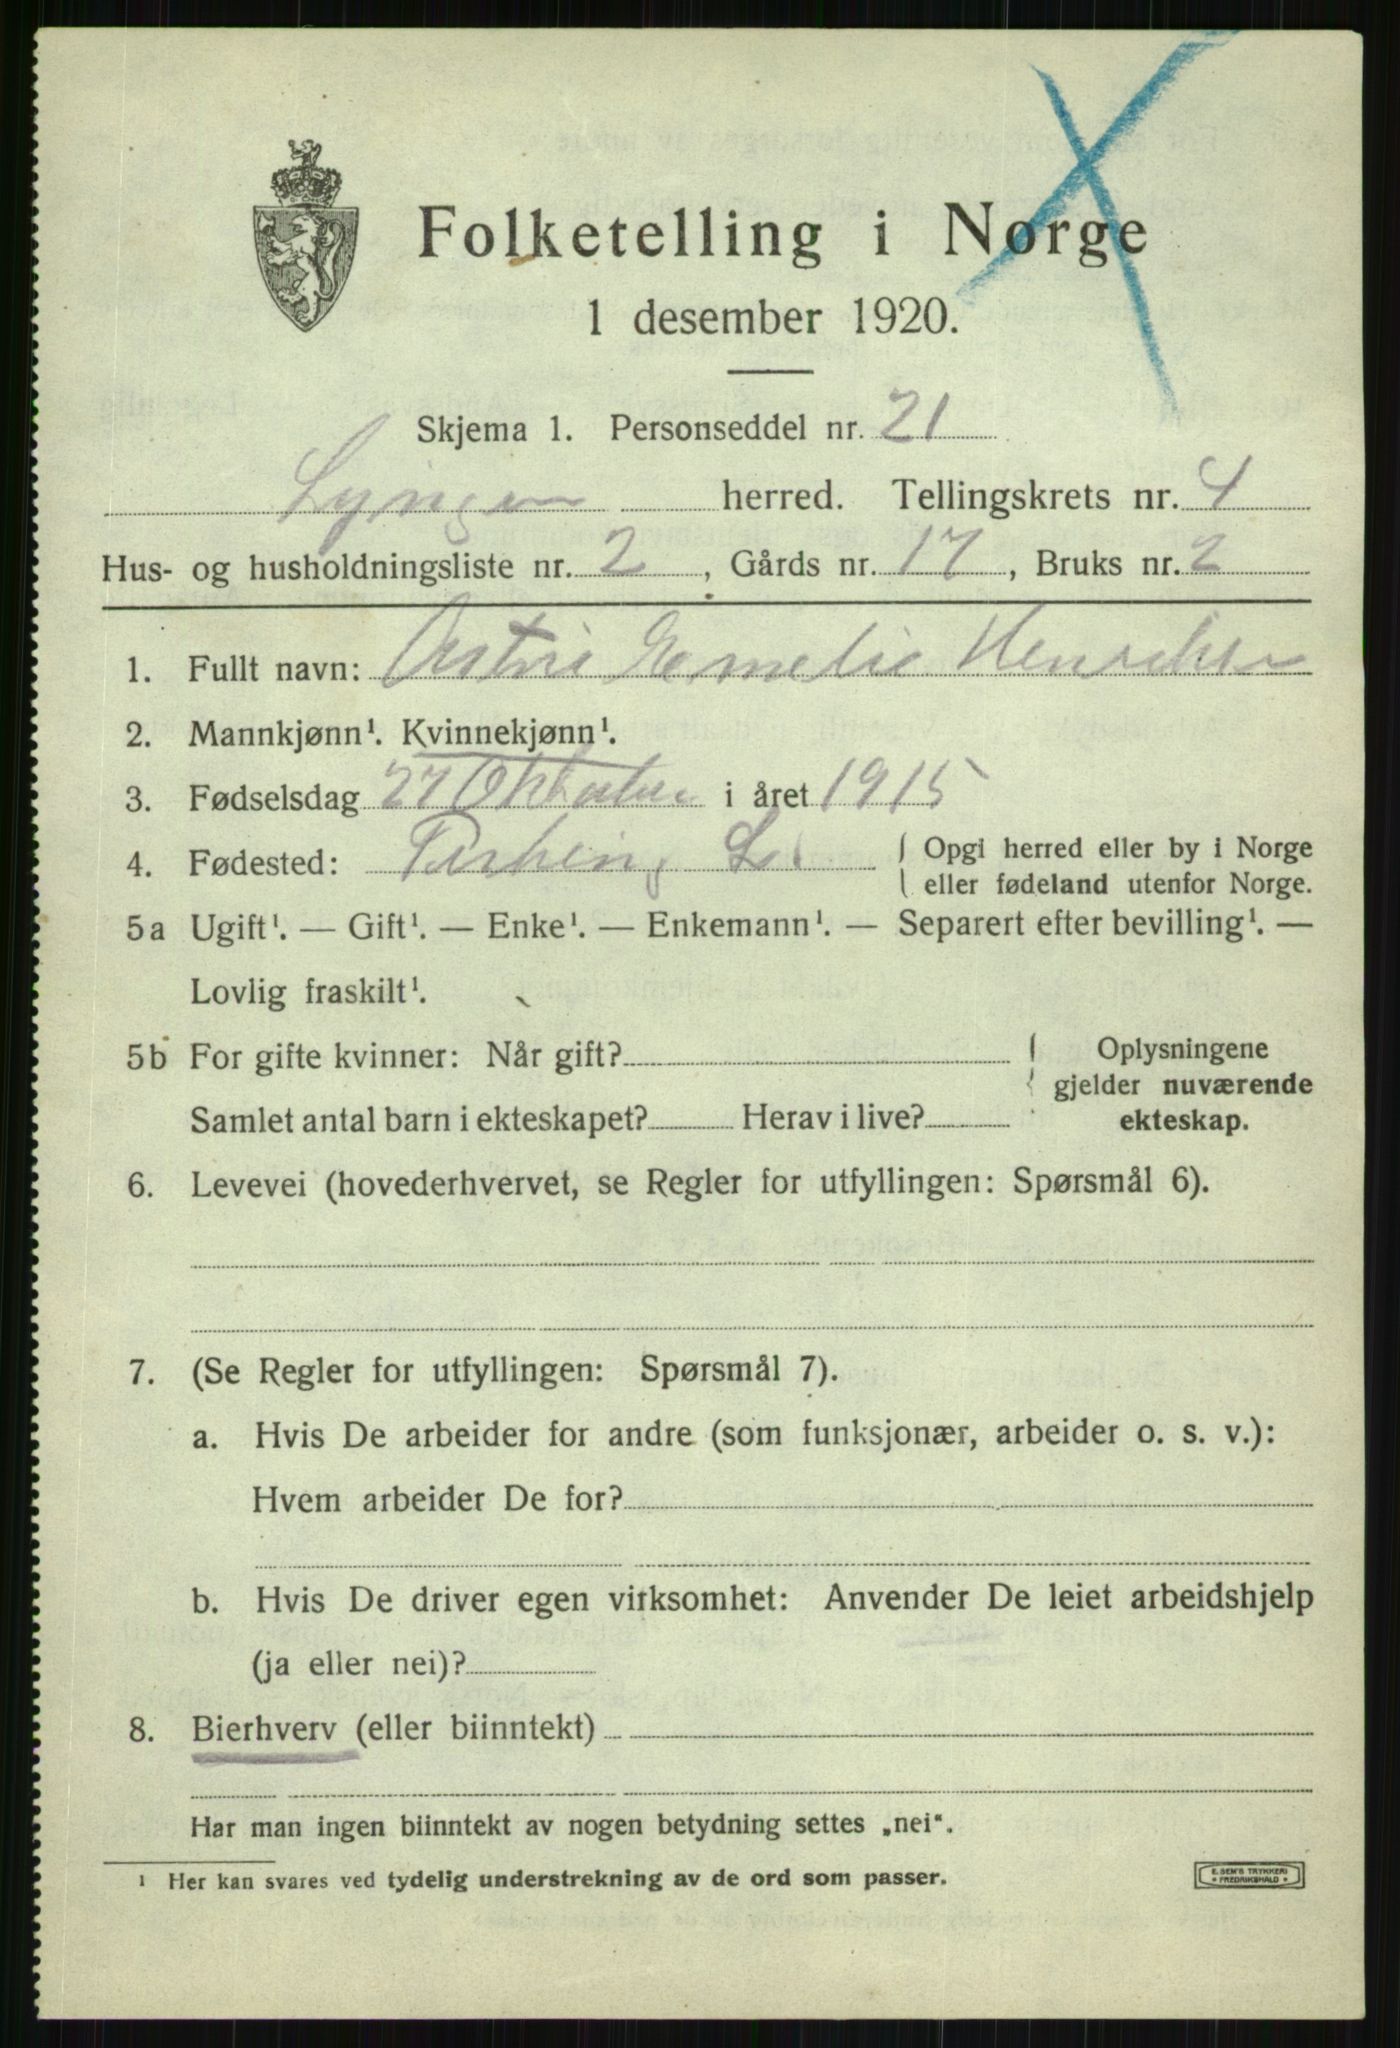 Folketelling i Norge
1 desember 1920.
Skjema 1. Personseddel nr. 21
Lyngen herred. Tellingskrets nr. 4
Hus- og husholdningsliste nr. 2, Gårds nr. 17, Bruks nr. 2
1. Fullt navn: Astri Emelie
2. Mannkjønn¹. Kvinnekjønn¹.
3. Fødselsdag 27 Oktober i året 1915
4. Fødested: { Opgi herred eller by i Norge
eller fødeland utenfor Norge.
5a Ugift¹. — Gift¹. — Enke¹. — Enkemann¹. — Separert efter bevilling¹. —
Lovlig fraskilt¹.
5b For gifte kvinner: Når gift? { Oplysningene
gjelder nuværende
Samlet antal barn i ekteskapet? Herav i live? ekteskap.
6. Levevei (hovederhvervet, se Regler for utfyllingen: Spørsmål 6).
7. (Se Regler for utfyllingen: Spørsmål 7).
a. Hvis De arbeider for andre (som funksjonær, arbeider o. s. v.):
Hvem arbeider De for?
b. Hvis De driver egen virksomhet: Anvender De leiet arbeidshjelp
(ja eller nei)?
8. Bierhverv (eller biinntekt)
Har man ingen biinntekt av nogen betydning settes „nei“.
¹ Her kan svares ved tydelig understrekning av de ord som passer.
E. SEM'S TRYKKERI
FREDRIKSHALD